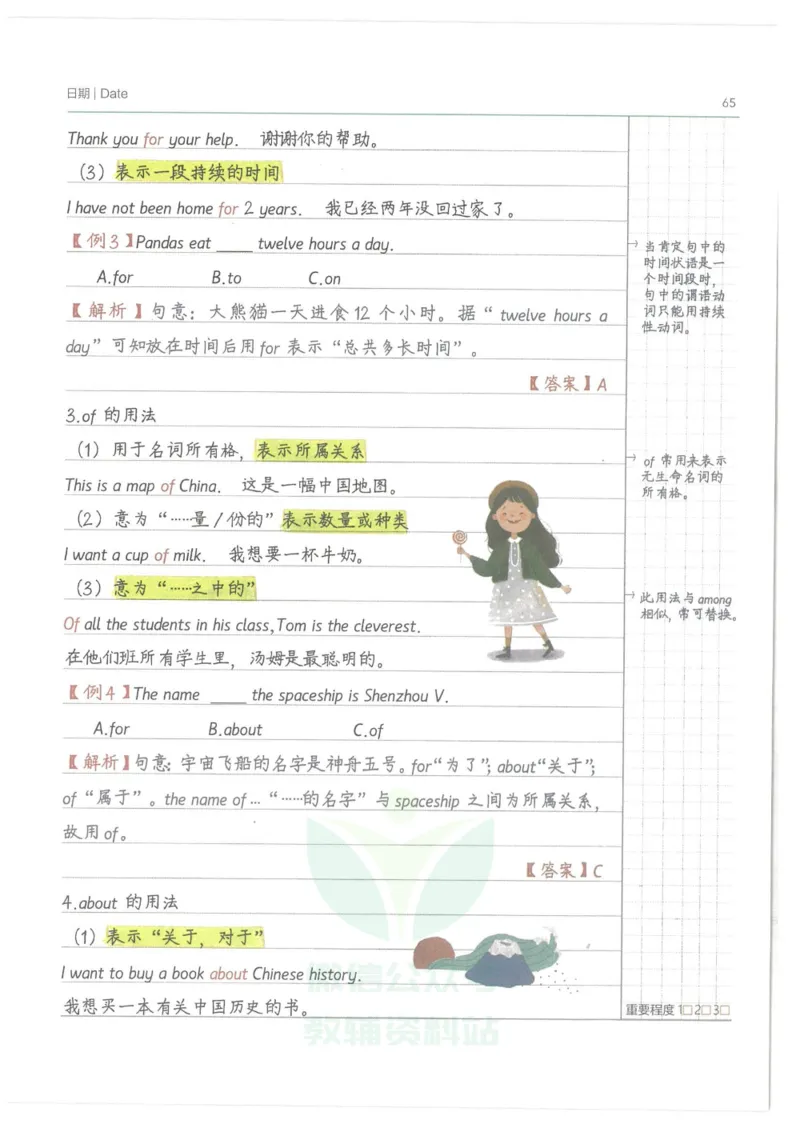 日期 | Date
65
Thank you for your help. 谢谢你的帮助。
(3) 表示一段持续的时间
I have not been home for 2 years. 我已经两年没回过家了。
【例3】Pandas eat ____ twelve hours a day.
A.for B.to C.on
【解析】句意：大熊猫一天进食12个小时。据“ twelve hours a
day”可知放在时间后用for 表示“总共多长时间”。
【答案】A
3.of 的用法
(1) 用于名词所有格，表示所属关系
This is a map of China. 这是一幅中国地图。
(2) 意为“……量/份的”表示数量或种类
I want a cup of milk. 我想要一杯牛奶。
(3) 意为“……之中的”
Of all the students in his class,Tom is the cleverest.
在他们班所有学生里，汤姆是最聪明的。
【例4】The name ____ the spaceship is Shenzhou V.
A.for B.about C.of
【解析】句意：宇宙飞船的名字是神舟五号。for“为了”；about“关于”；
of“属于”。the name of …“……的名字”与 spaceship 之间为所属关系，
故用of。
【答案】C
4.about 的用法
(1) 表示“关于，对于”
I want to buy a book about Chinese history.
我想买一本有关中国历史的书。
→ 当肯定句中的
时间状语是一
个时间段时，
句中的谓语动
词只能用持续
性动词。
→ of 常用来表示
无生命名词的
所有格。
→ 此用法与 among
相似，常可替换。
重要程度 1□ 2□ 3□
微信公众号
教辅资料站